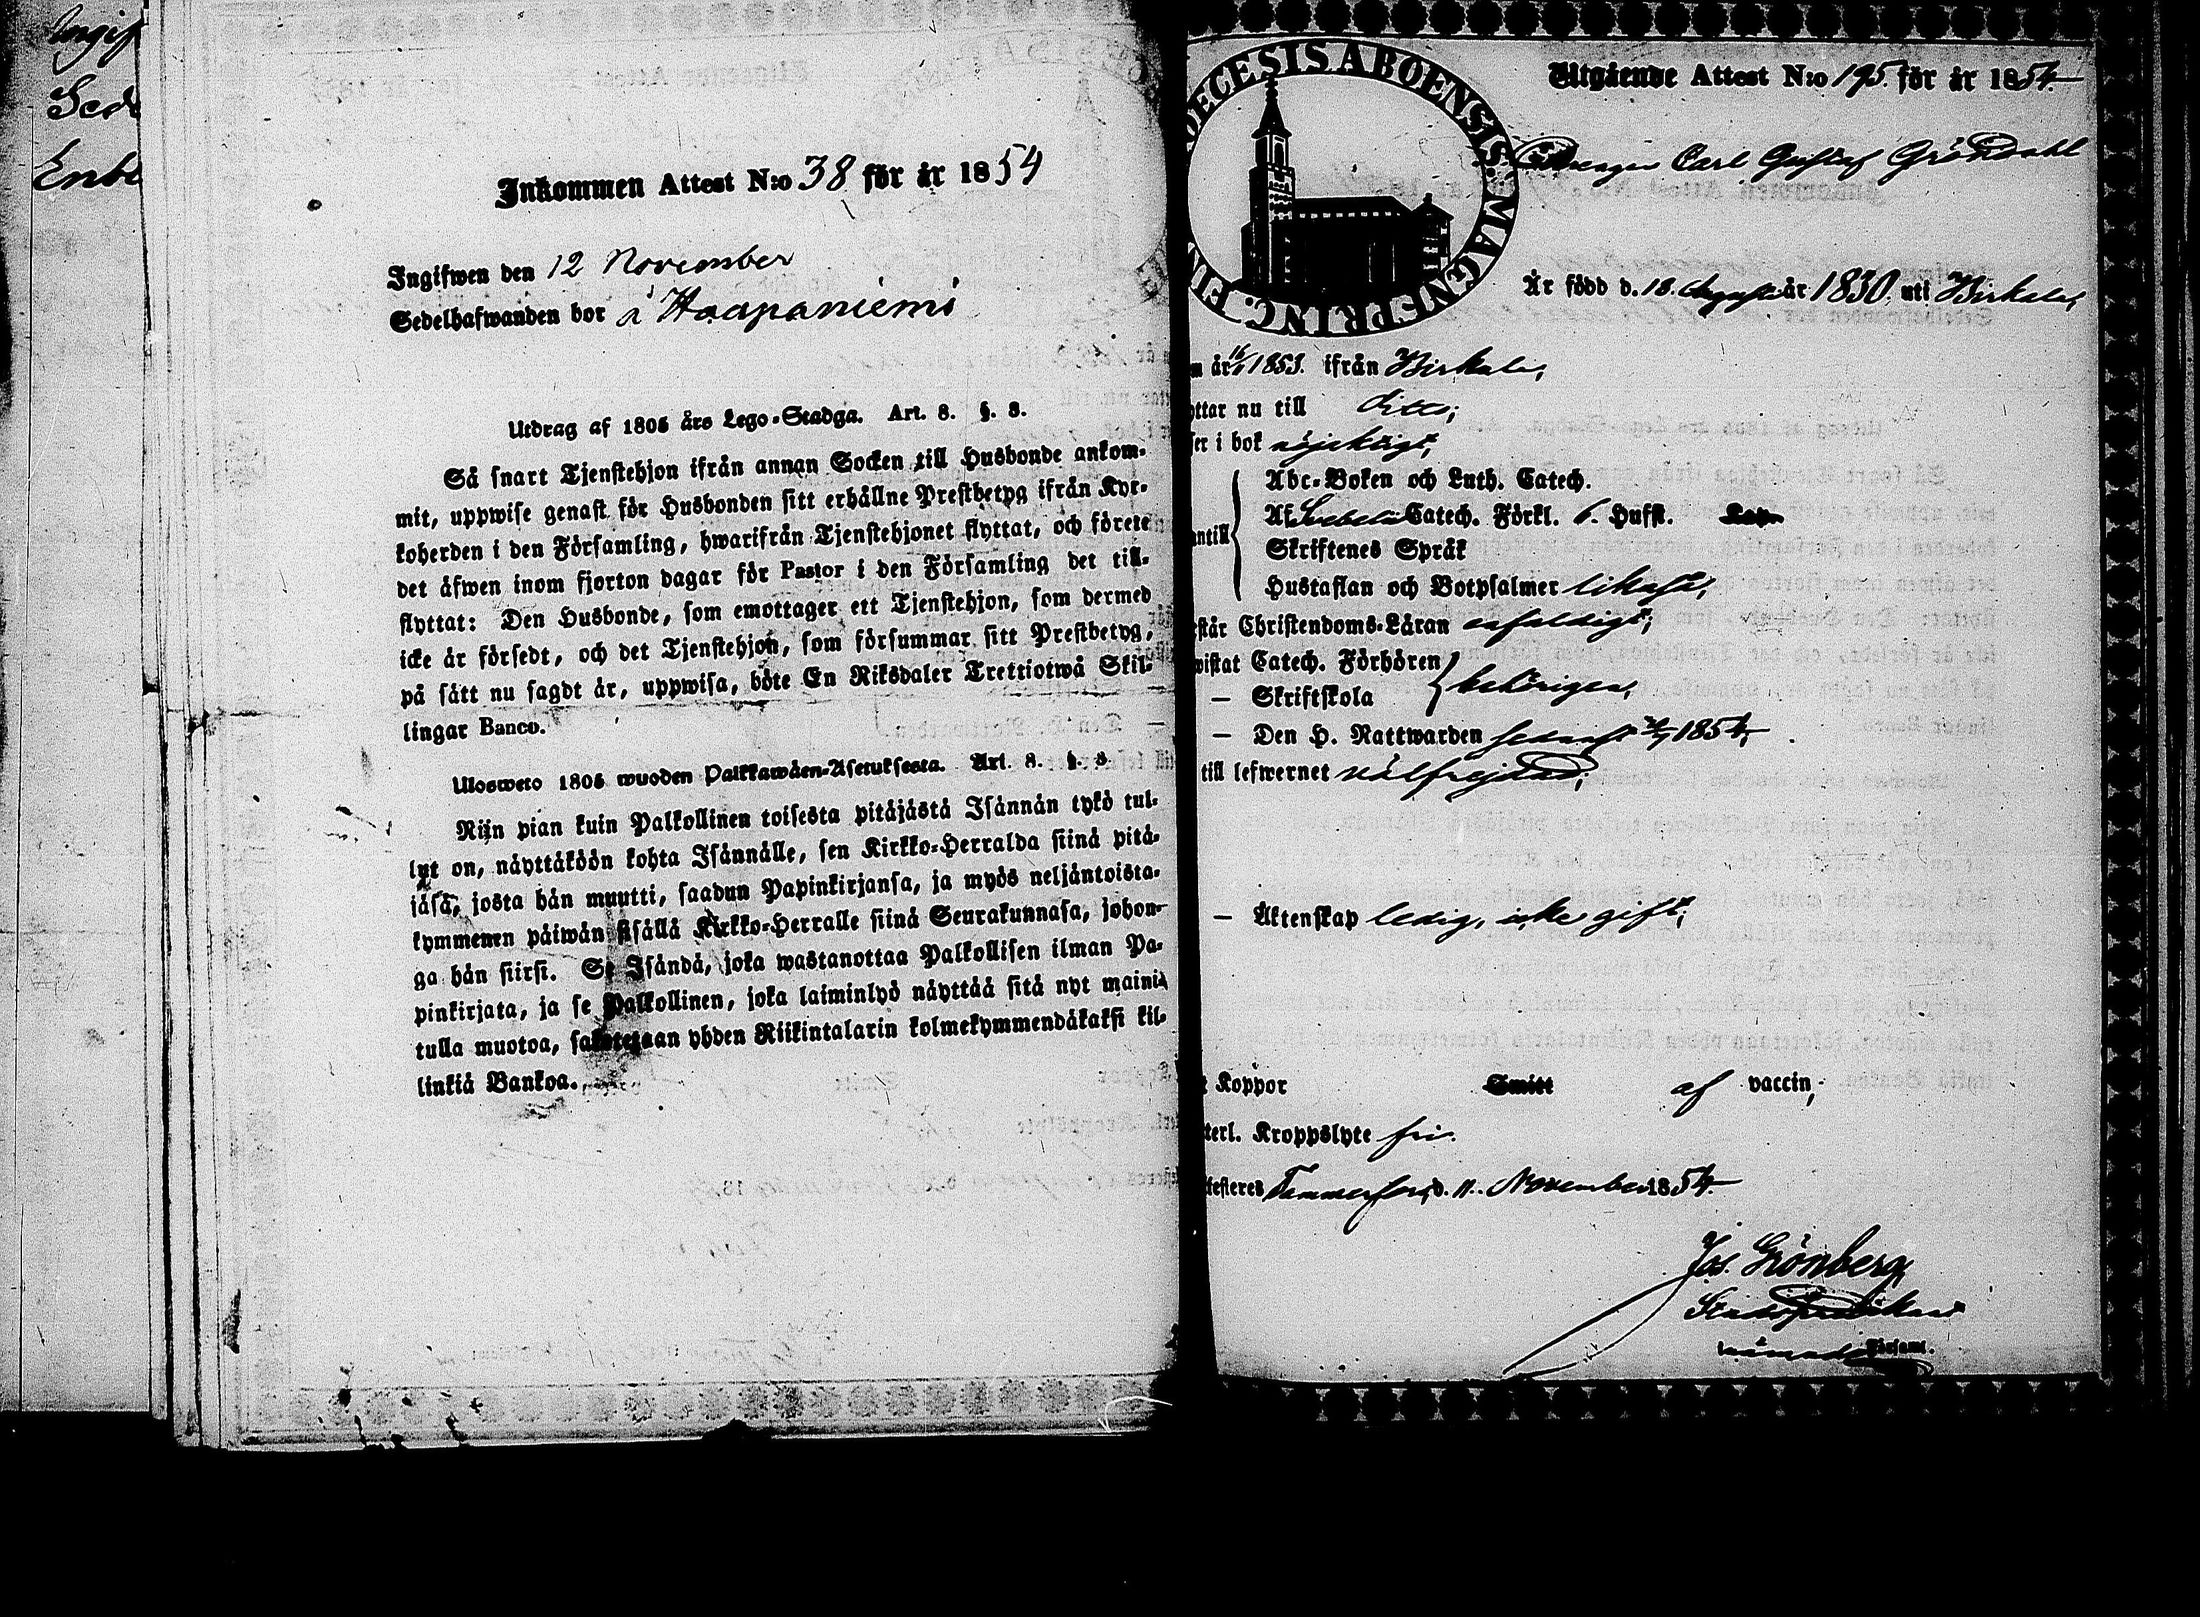 Ingif
Sede
Enbe
Inkommen Attest N:o 38 för år 1854
Ingifwen den 12 November
Sedelhafwanden bor å Haapaniemi
Utdrag af 1805 års Lego-Stadga. Art. 8. §. 8.
Så snart Tjenstehjon ifrån annan Socken till Husbonde ankom-
mit, uppwise genast för Husbonden sitt erhållne Prestbetyg ifrån Kyr-
koherden i den Församling, hwarifrån Tjenstehjonet flyttat, och förete
det äfwen inom fjorton dagar för Pastor i den Församling det till-
flyttat: Den Husbonde, som emottager ett Tjenstehjon, som dermed
icke är försedt, och det Tjenstehjon, som försummar sitt Prestbetyg,
på sätt nu sagdt är, uppwisa, böte En Riksdaler Trettiotwå Skil-
lingar Banco.
Ulosweto 1805 wuoden Palkkawäen-Asetuksesta. Art. 8. §. 8
Niin pian kuin Palkollinen toisesta pitäjästä Isännän tykö tul-
lut on, näyttäköön kohta Isännälle, sen Kirkko-Herralda siinä pitä-
jäsä, josta hän muutti, saadun Papinkirjansa, ja myös neljäntoista-
kymmenen päiwän sisällä Kirkko-Herralle siinä Seurakunnasa, johon-
ga hän siirsi. Se Isändä, joka wastanottaa Palkollisen ilman Pa-
pinkirjata, ja se Palkollinen, joka laiminlyö näyttää sitä nyt mainit
tulla muotoa, sakotetaan yhden Riikintalarin kolmekymmendäkaksi kil-
linkiä Bankoa.
DECESIS ABOENSIS. MAGNI PRINC. FIN
Utgående Attest N:o 195. för år 1854.
Carl Gustaf Gröndahl
Är född d. 18. Augusti år 1830. uti Birkala,
n år 1853. ifrån Birkala,
yttar nu till ditto;
ser i bok nöjaktigt,
Abc-Boken och Luth. Catech.
Af Svebelii Catech. Förkl. Husft.
antill Skriftenes Språk
Hustaflan och Botpsalmer likaså,
står Christendoms-Läran enfaldigt;
wistat Catech. Förhören
— Skriftskola behörigen,
— Den H. Nattwarden senast 1854,
till lefwernet välfrejdad;
— Äktenskap ledig, icke gift;
t Koppor Smitt af vaccin,
terl. Kroppslyte fri.
testeres Tammerfors, d. 11. November 1854.
Jos. Grönberg
Stadspredikant
Församl.